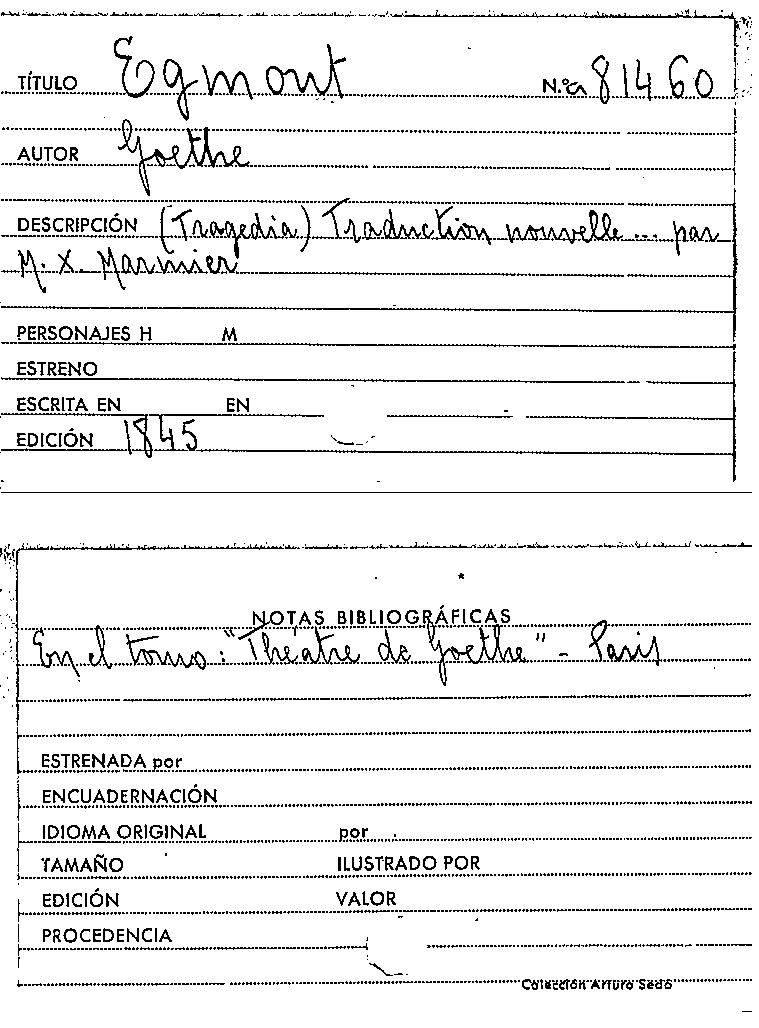 TÍTULO Egmont N.º 81460
AUTOR Goethe
DESCRIPCIÓN (Tragedia) Traduction nouvelle ... par
M. X. Marmier
PERSONAJES H M
ESTRENO
ESCRITA EN EN
EDICIÓN 1845
NOTAS BIBLIOGRÁFICAS
En el tomo: "Théatre de Goethe" - Paris
ESTRENADA por
ENCUADERNACIÓN
IDIOMA ORIGINAL por
TAMAÑO ILUSTRADO POR
EDICIÓN VALOR
PROCEDENCIA
Colección Arturo Sedó